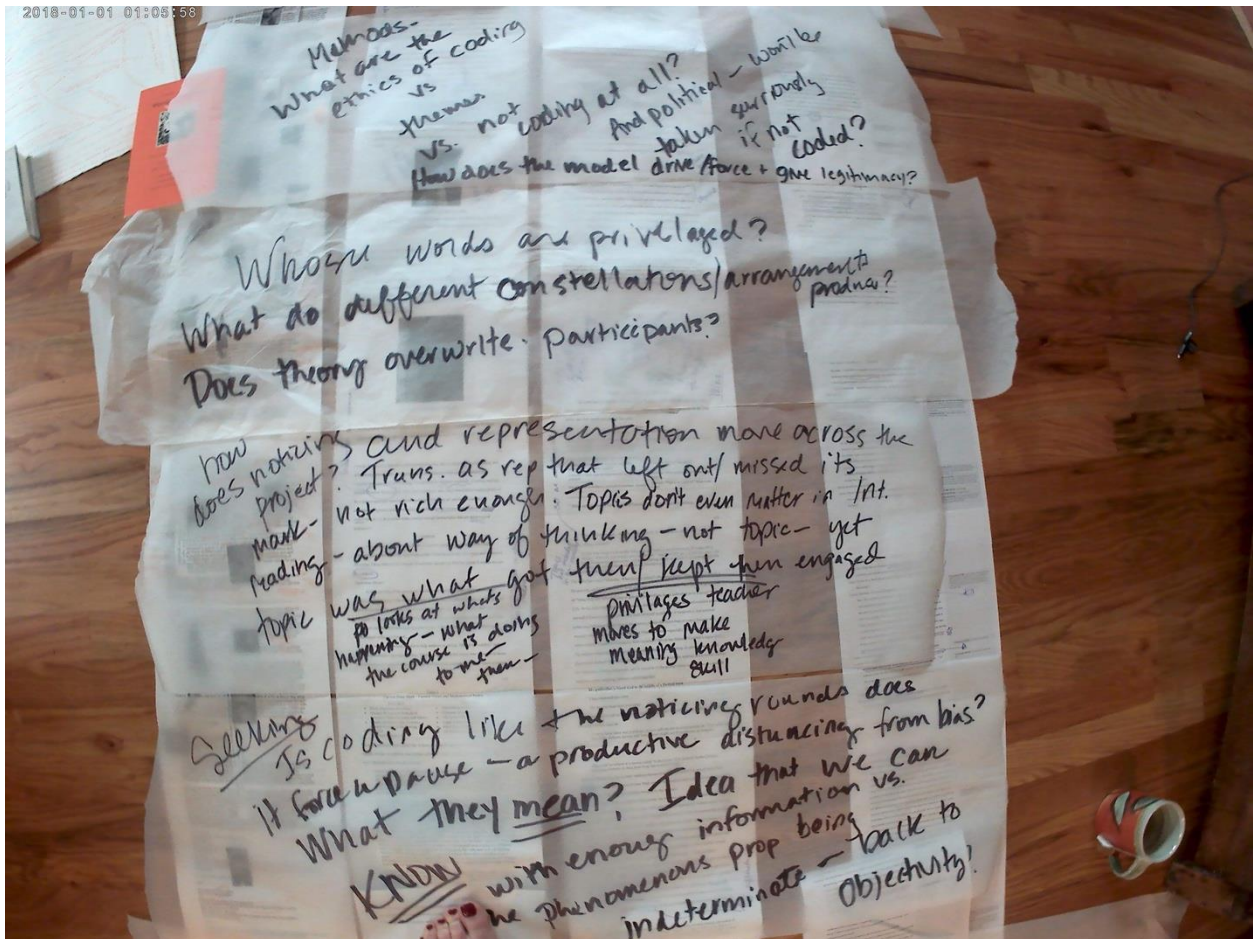 2018-01-01 01:05:58
Methods-
What are the
ethics of coding
vs
themes
vs. not coding at all?
And political - won't be
taken surriously
if not
coded?
How does the model drive/force + give legitimacy?
Whose words are privelaged?
What do different constellations/arrangements
produce?
Does theory overwrite. participants?
how
does noticing and representation move across the
project? Trans. as rep that left out/missed its
mark - not rich enough. Topics don't even matter in Int.
reading - about way of thinking - not topic - yet
topic was what got them/kept them engaged
so looks at whats
happening - what
the course is doing
to me -
them -
privilages teacher
moves to make
meaning knowledge
skill
Seeking
Is coding like the noticing rounds does
it force a pause - a productive distancing from bias?
What they mean? Idea that we can
KNOW with enoug information vs.
he phenomenons prop being
indeterminate - back to
objectivity!